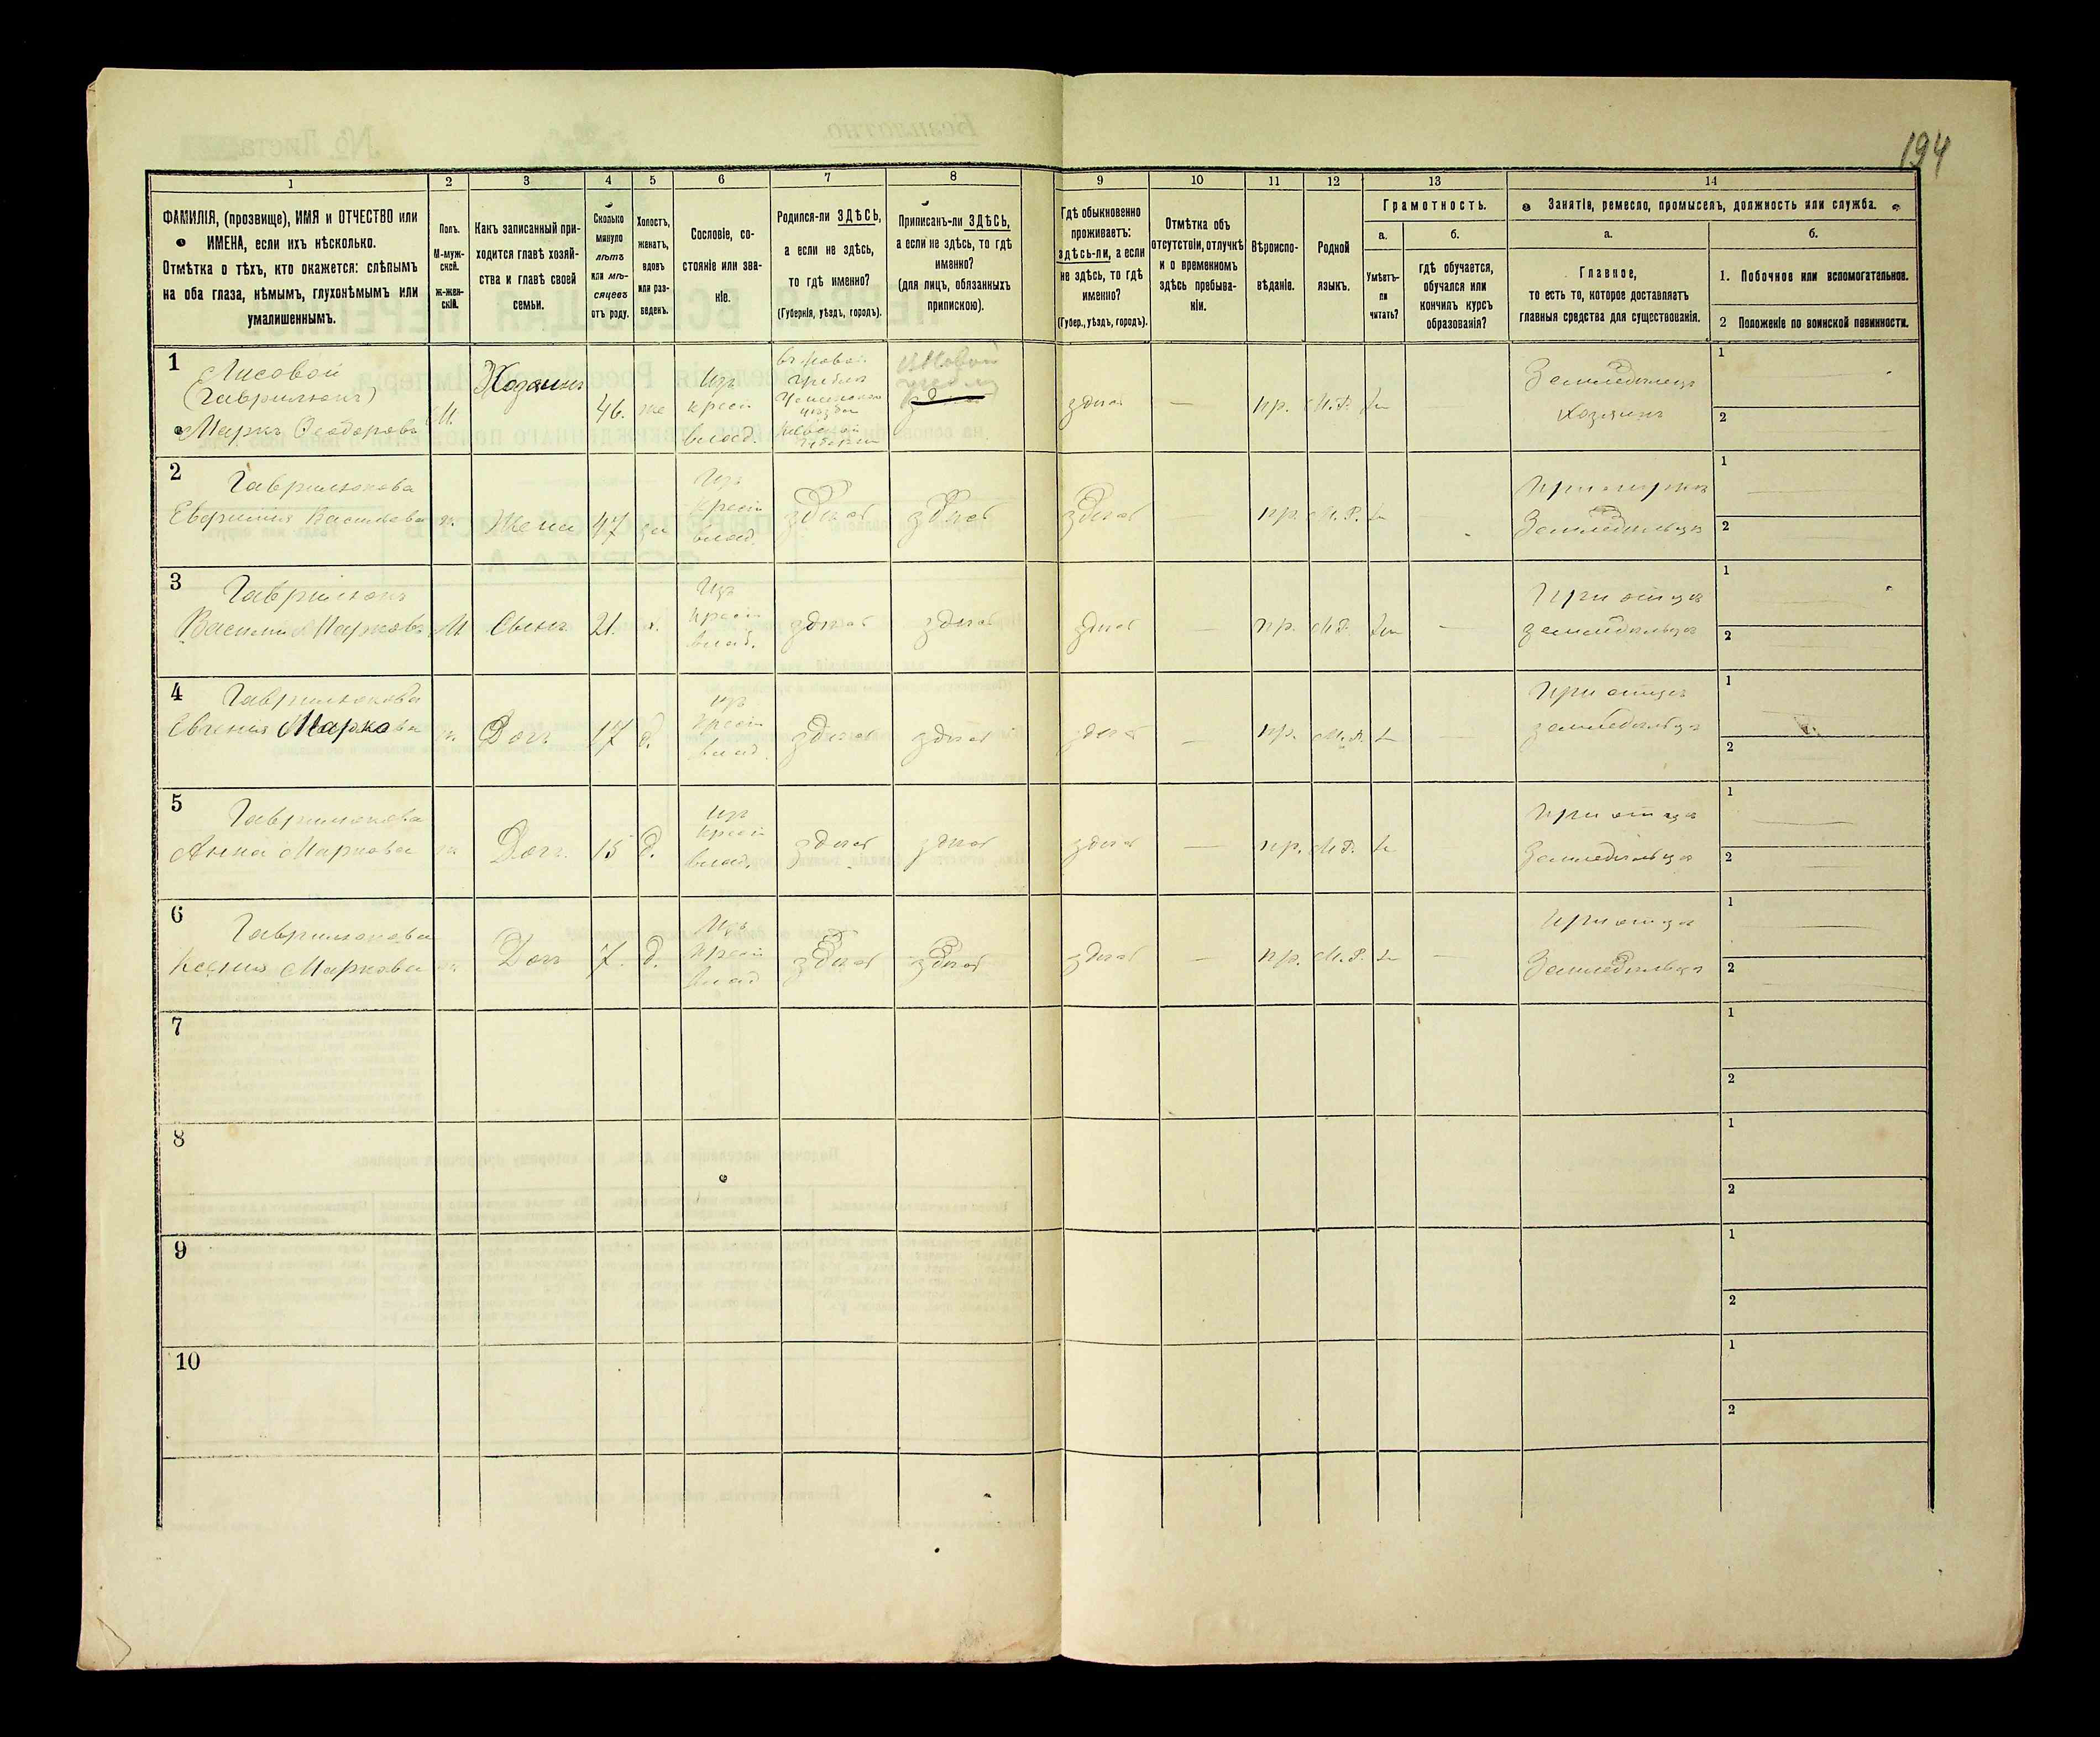 194
1
2
3
4
5
6
7
8
9
10
11
12
13
14
ФАМИЛІЯ, (прозвище), ИМЯ и ОТЧЕСТВО или
ИМЕНА, если ихъ нѣсколько.
Отмѣтка о тѣхъ, кто окажется: слѣпымъ
на оба глаза, нѣмымъ, глухонѣмымъ или
умалишеннымъ.
Полъ.
М-муж-
ской.
ж-жен-
скій.
Какъ записанный при-
ходится главѣ хозяй-
ства и главѣ своей
семьи.
Сколько
минуло
лѣтъ
или мѣ-
сяцевъ
отъ роду.
Холостъ,
женатъ,
вдовъ
или раз-
веденъ.
Сословіе, со-
стояніе или зва-
ніе.
Родился-ли ЗДѢСЬ,
а если не здѣсь,
то гдѣ именно?
(Губернія, уѣздъ, городъ).
Приписанъ-ли ЗДѢСЬ,
а если не здѣсь, то гдѣ
именно?
(для лицъ, обязанныхъ
припискою).
Гдѣ обыкновенно
проживаетъ:
здѣсь-ли, а если
не здѣсь, то гдѣ
именно?
(Губер., уѣздъ, городъ).
Отмѣтка объ
отсутствіи, отлучкѣ
и о временномъ
здѣсь пребыва-
ніи.
Вѣроиспо-
вѣданіе.
Родной
языкъ.
Грамотность.
а.
Умѣетъ-
ли
читать?
б.
гдѣ обучается,
обучался или
кончилъ курсъ
образованія?
Занятіе, ремесло, промыселъ, должность или служба.
а.
Главное,
то есть то, которое доставляетъ
главныя средства для существованія.
б.
1. Побочное или вспомогательное.
2 Положеніе по воинской повинности.
1
Лисовой
(Гаврилюкъ)
Маркъ Ѳеодоровъ
М.
Хозяинъ
46.
же
Изъ
крест
влад.
здѣсь
—
пр.
М.Р.
Земледѣлецъ
Хозяинъ
1
2
2
Гаврилюкова
Васильева
Жена
47
за
Изъ
крест
влад.
здѣсь
здѣсь
здѣсь
—
пр.
М.Р.
При мужѣ
Земледѣльцѣ
1
2
3
Гаврилюкъ
Василій Марковъ
М
Сынъ
21.
х.
Изъ
крест
влад.
здѣсь
здѣсь
здѣсь
—
пр.
М.Р.
—
При отцѣ
земледѣльцѣ
1
2
4
Гаврилюкова
Евгенія Маркова
Доч.
17
д.
изъ
крест
влад.
здѣсь
здѣсь
здѣсь
—
пр.
М.Р.
—
При отцѣ
земледѣльцѣ
1
2
5
Гаврилюкова
Анна Маркова
Доч.
15
д.
изъ
крест
влад.
здѣсь
здѣсь
здѣсь
—
пр.
М.Р.
При отцѣ
Земледѣльцѣ
1
2
6
Гаврилюкова
Ксенія Маркова
Доч
7.
д.
Изъ
крест
влад
здѣсь
здѣсь
здѣсь
—
пр.
М.Р.
—
При отцѣ
Земледѣльцѣ
1
2
7
1
2
8
1
2
9
1
2
10
1
2